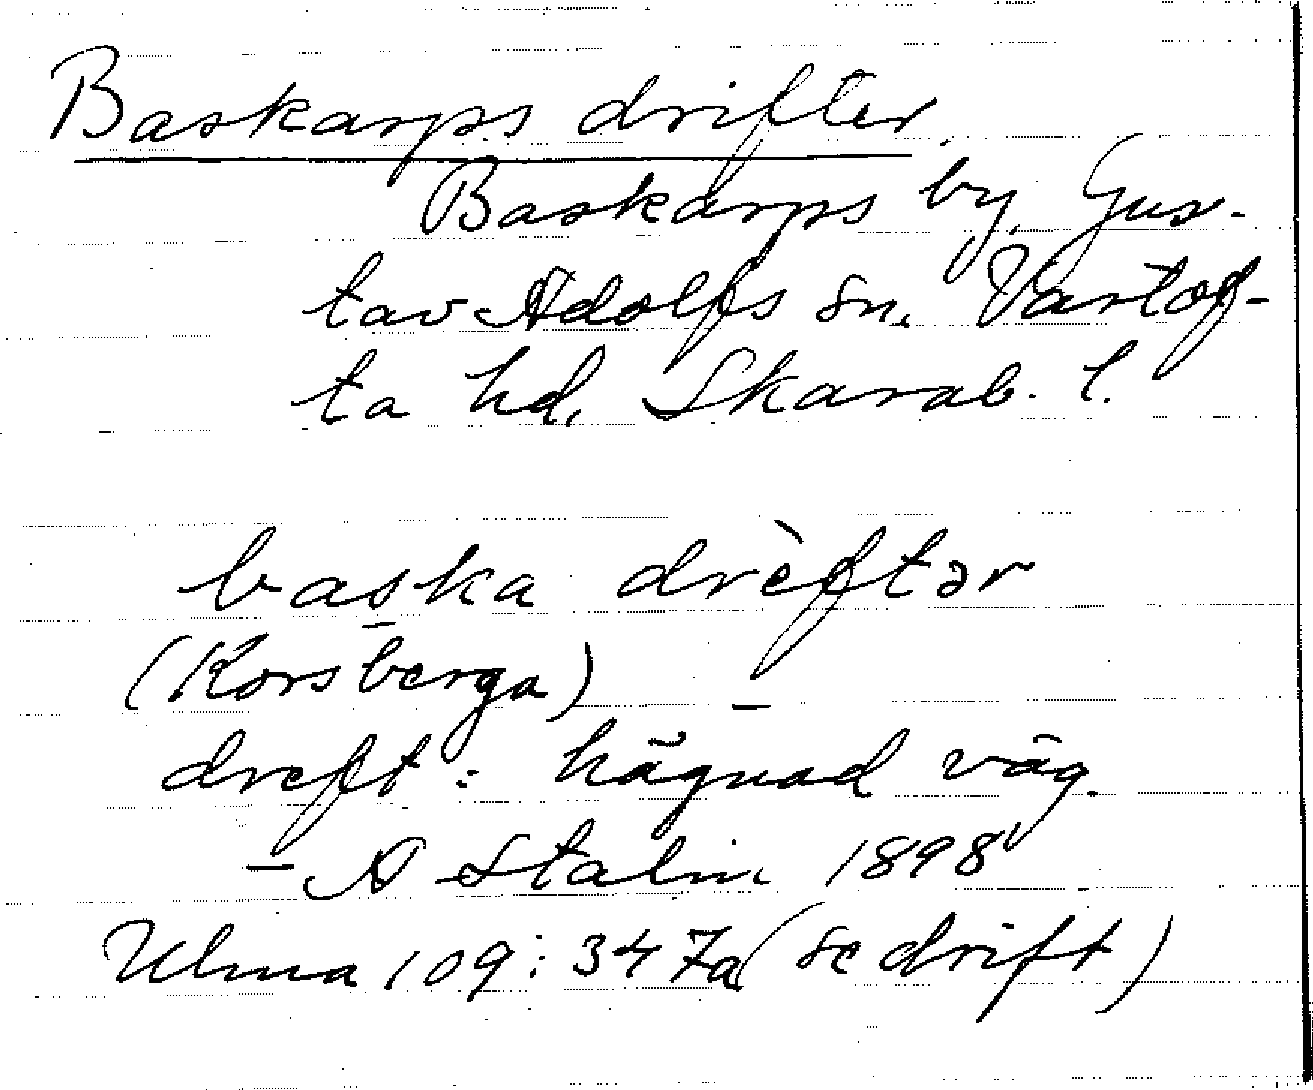 Baskarps drifter.
Baskarps by, Gus-
tav Adolfs sn. Vartof-
ta hd, Skarab. l.
baska drèftər
(Korsberga)
dreft: hägnad väg.
A Stalin 1898
Ulma 109:347a (se drift)